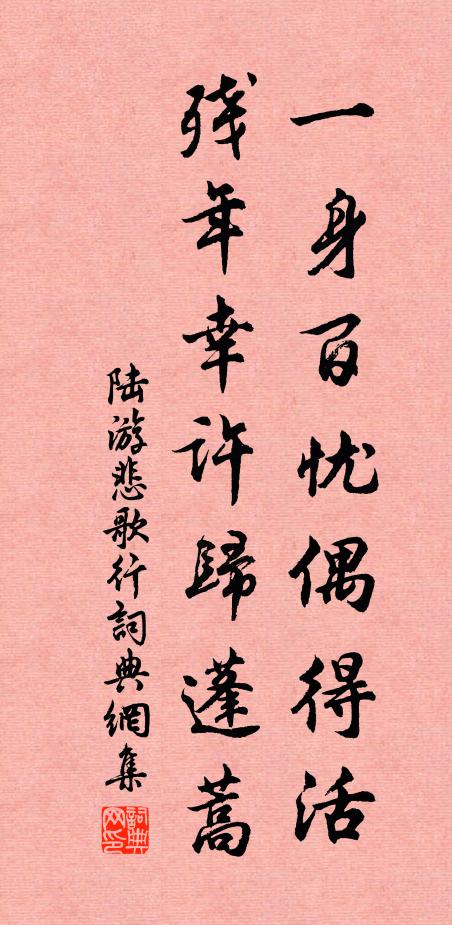 一身百忧偶得活
残年幸许歸蓬蒿
陆游悲歌行詞典網集
詞典网印